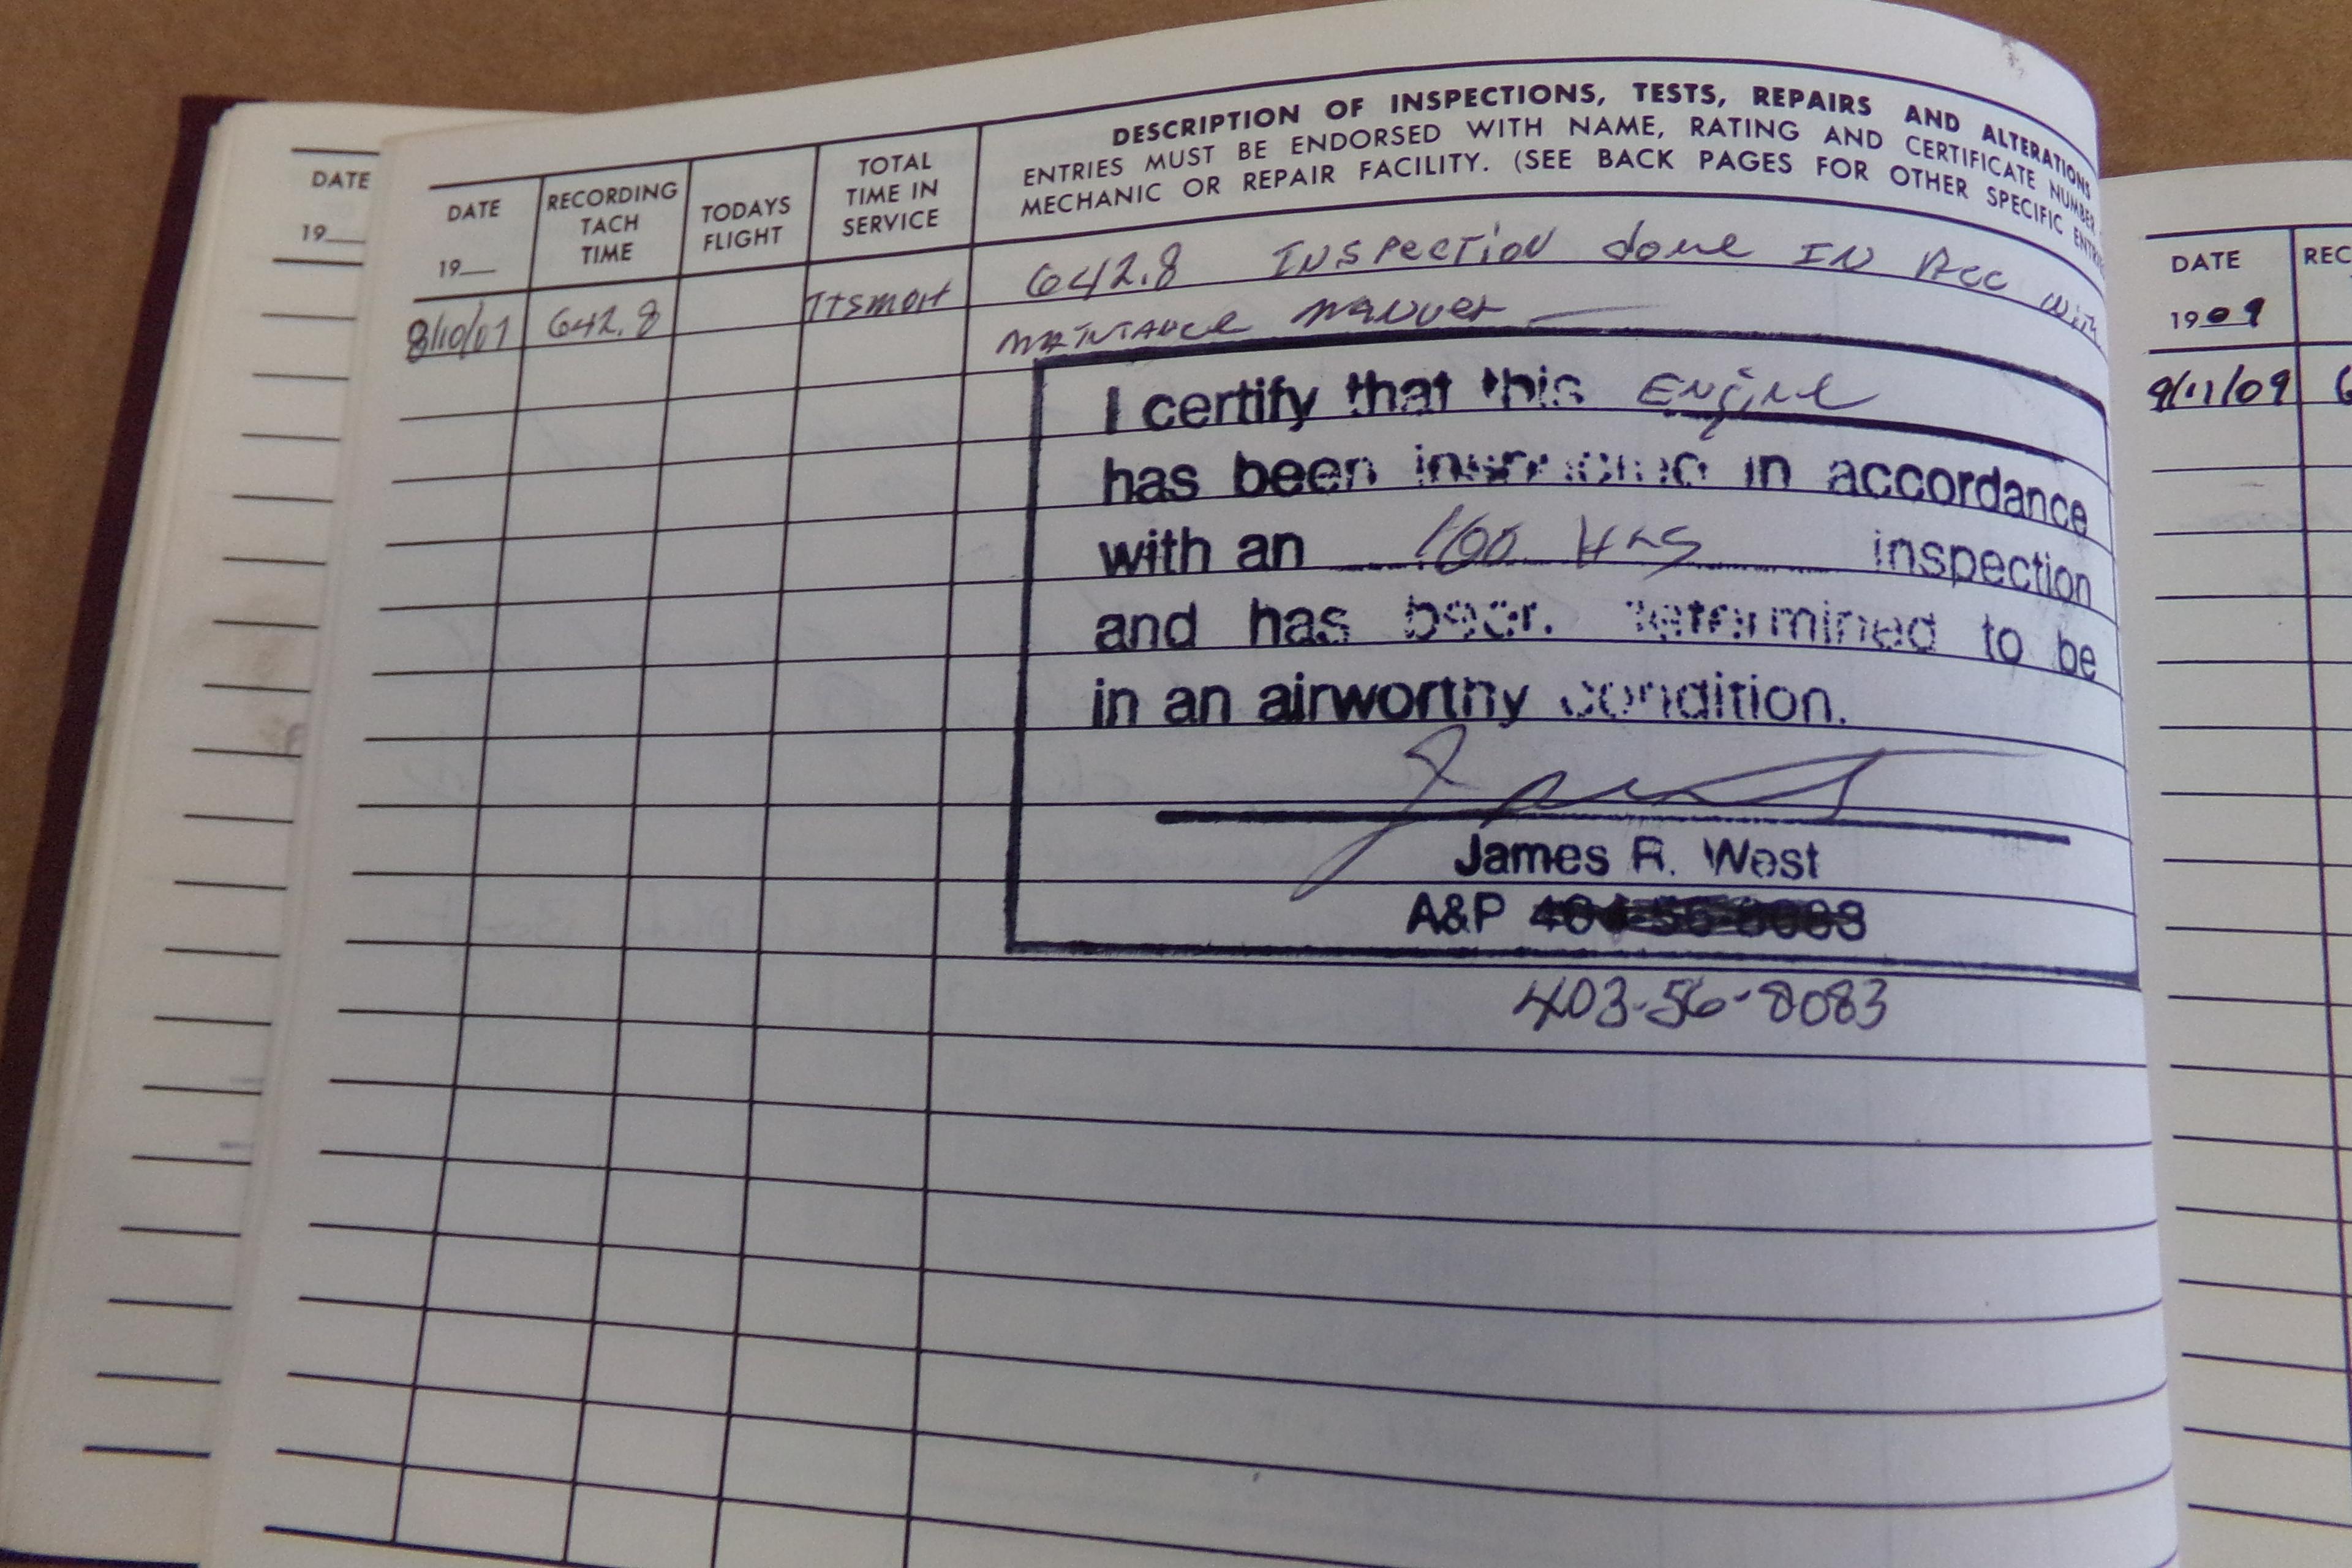 DATE
19__
DATE
19__
RECORDING
TACH
TIME
TODAYS
FLIGHT
TOTAL
TIME IN
SERVICE
DESCRIPTION OF INSPECTIONS, TESTS, REPAIRS AND ALTERATIONS
ENTRIES MUST BE ENDORSED WITH NAME, RATING AND CERTIFICATE NUMBER
MECHANIC OR REPAIR FACILITY. (SEE BACK PAGES FOR OTHER SPECIFIC
8/10/07 642.8 642.8 INSPECTION done IN Acc with
I certify that this Engine
has been in accordance
with an 100 HRS inspection
and has been determined to be
in an airworthy condition.
James R. West
A&P
403-56-8083
DATE
1909
9/11/09
REC